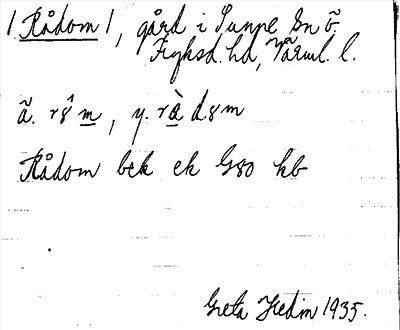 1. Rådom 1, gård i Sunne Sn ö.
Fryksd. hd, Värml. l.
ã. rɤ̂ m, y. rà dɤm
Rådom bek ek G80 kb
Greta Hedin 1935.